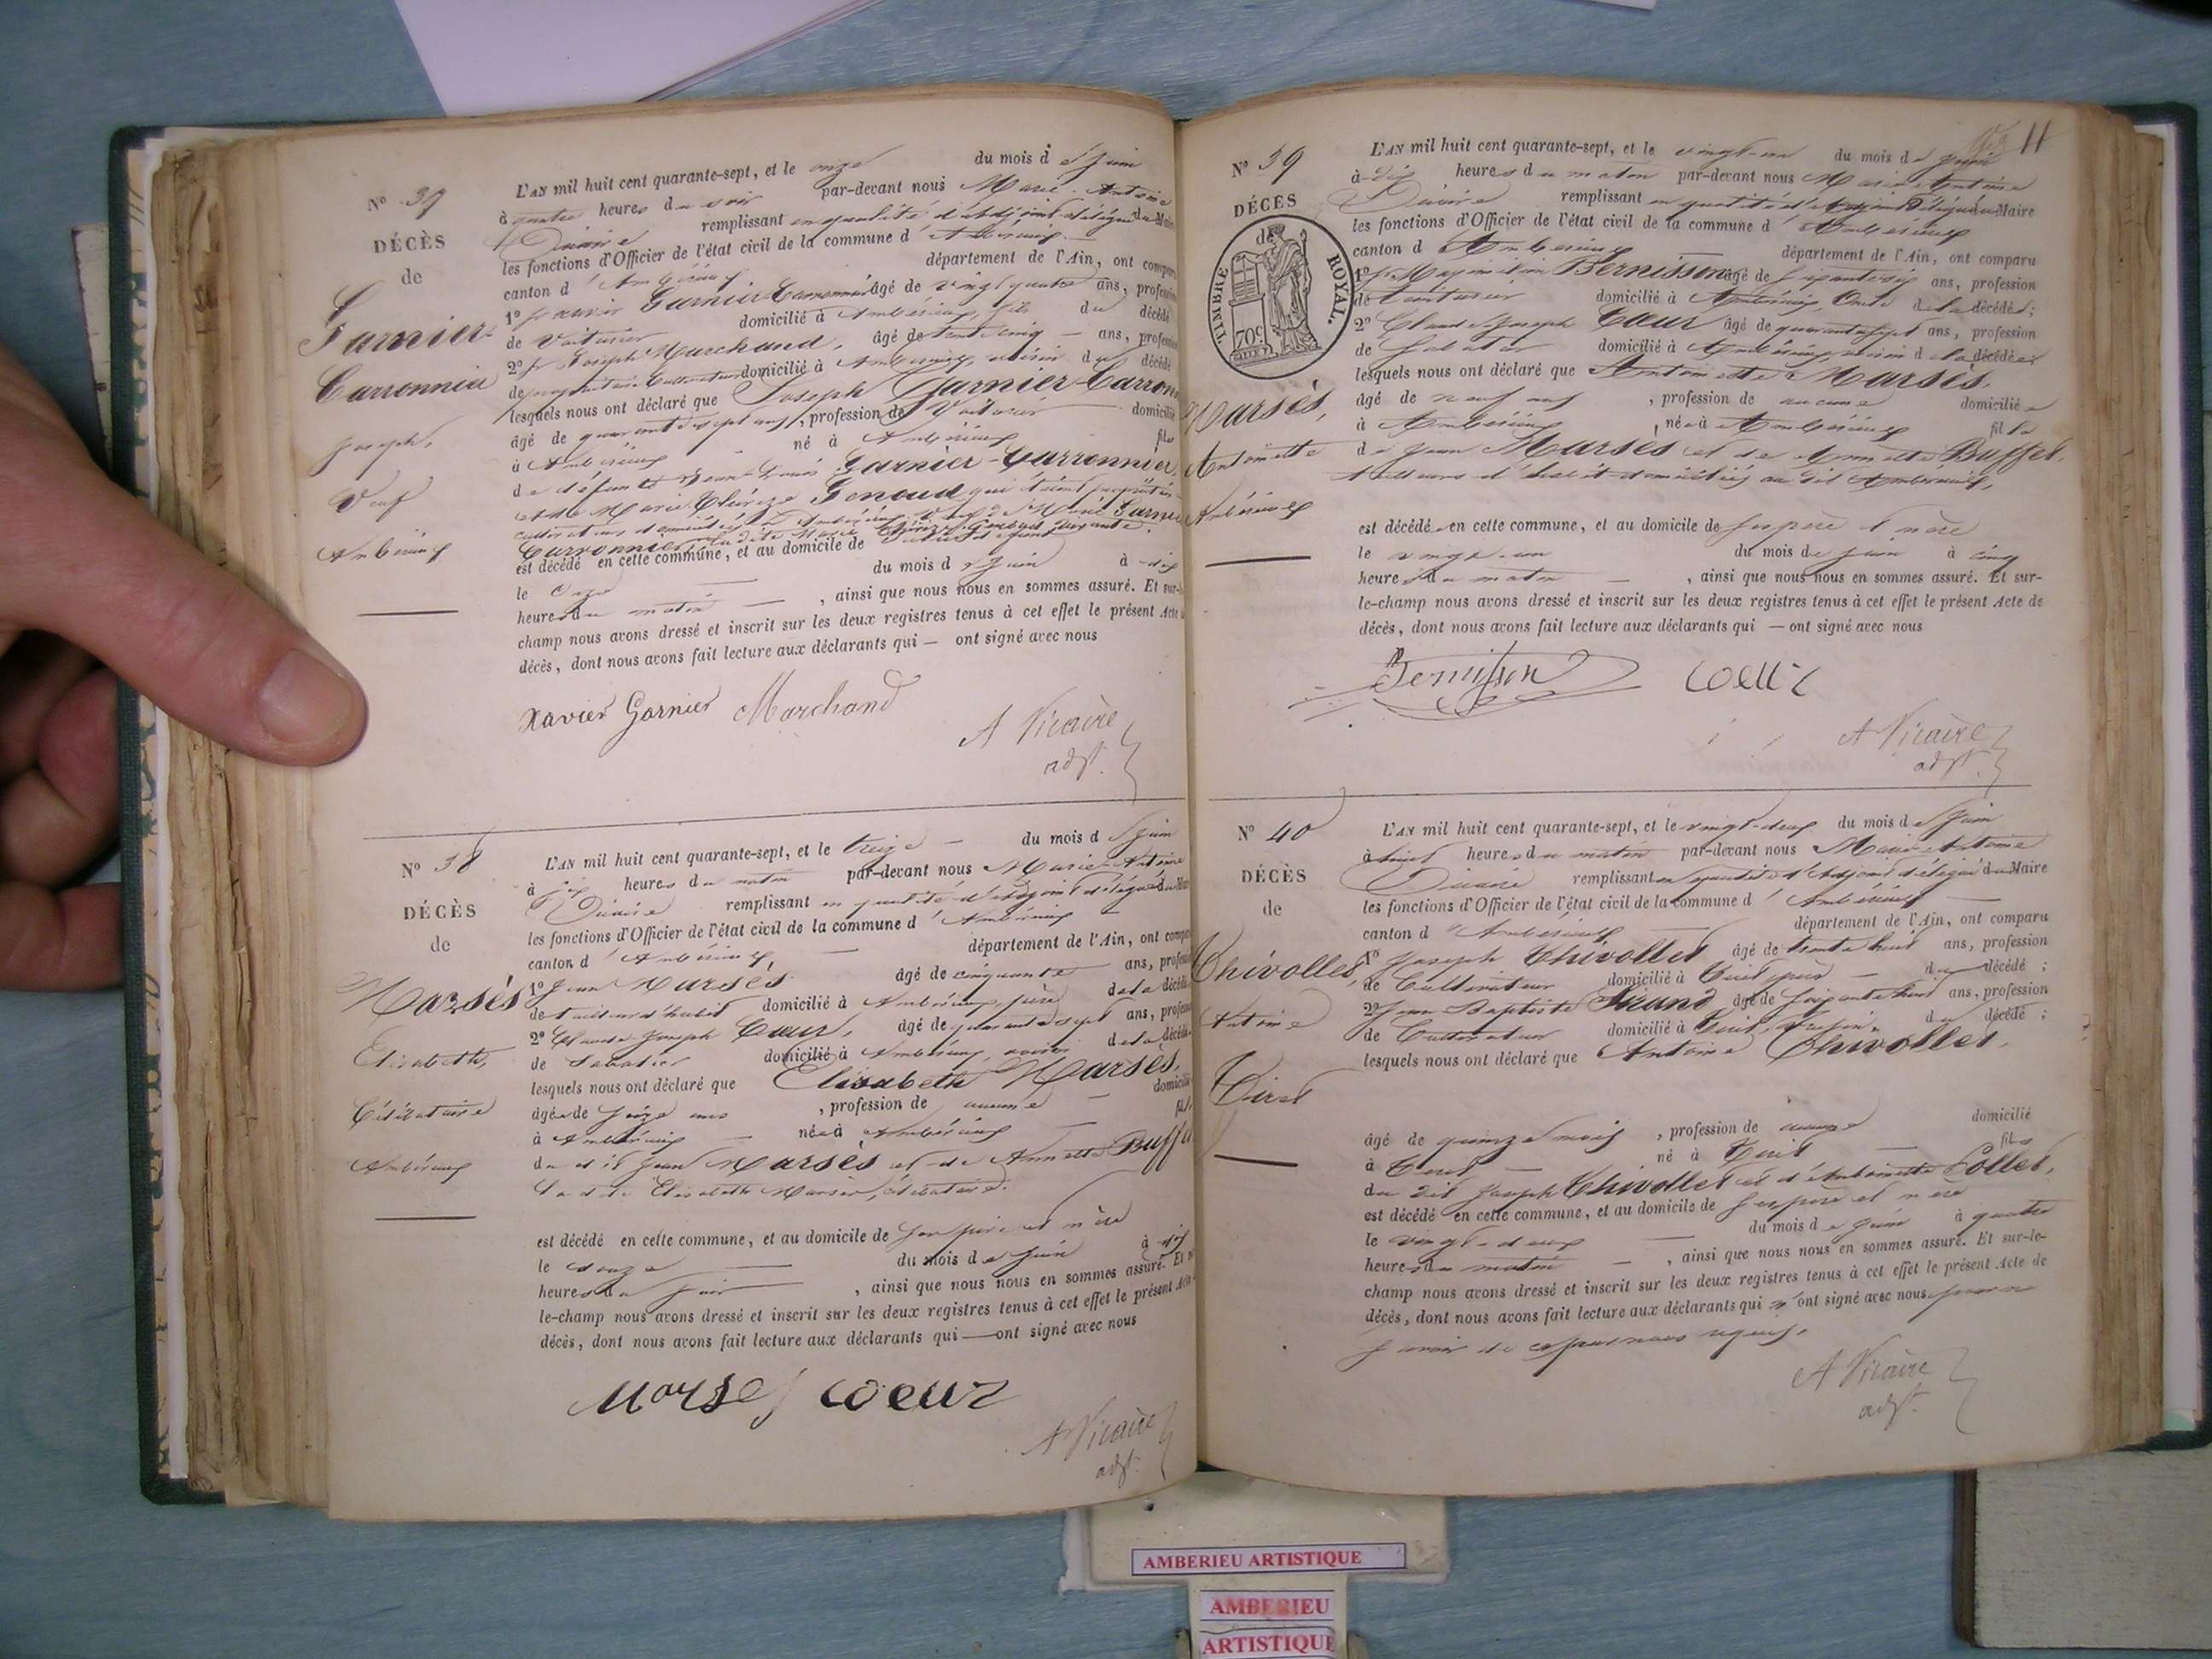 N° 37
DÉCÈS
de
Garnier-
Carronnier
Joseph,
Veuf
Ambérieux
L'AN mil huit cent quarante-sept, et le onze du mois de Juin
à quatre heures du soir par-devant nous Marie-Antoine
Vicaire remplissant en qualité d'adjoint délégué du Maire
les fonctions d'Officier de l'état civil de la commune d'Ambérieux
canton d'Ambérieux département de l'Ain, ont comparu
1° fr. Xavier Garnier-Carronnier âgé de vingt quatre ans, profession
de Voiturier domicilié à Ambérieux, fils du décédé
2° fr. Joseph Marchand, âgé de trente cinq ans, profession
de propriétaire Cultivateur domicilié à Ambérieux, voisin du décédé
lesquels nous ont déclaré que Joseph Garnier-Carron
âgé de quarante sept ans, profession de Voiturier domicilié
à Ambérieux né à Ambérieux fils
de défunts Jean Louis Garnier-Carronnier
et de Marie Thérèze Genoud qui étaient propriétaires
cultivateurs domiciliés à Ambérieux, Veuf de Marie Garnier
Carronnier
est décédé en cette commune, et au domicile de
le onze du mois de Juin à dix
heures du matin, ainsi que nous nous en sommes assuré. Et sur-
champ nous avons dressé et inscrit sur les deux registres tenus à cet effet le présent Acte
décès, dont nous avons fait lecture aux déclarants qui — ont signé avec nous
Xavier Garnier Marchand
A Vicaire
adjt.
N° 38
DÉCÈS
de
Marsès
Elisabeth,
Célibataire
Ambérieux
L'AN mil huit cent quarante-sept, et le treize du mois de Juin
à dix heures du matin par-devant nous Marie Antoine
Vicaire remplissant en qualité d'adjoint délégué du Maire
les fonctions d'Officier de l'état civil de la commune d'Ambérieux
canton d'Ambérieux, département de l'Ain, ont comparu
1° Jean Marsès âgé de cinquante ans, profession
de tailleur d'habit domicilié à Ambérieux, père de la décédée
2° Claude Joseph Coeur, âgé de quarante sept ans, profession
de Sabotier domicilié à Ambérieux, voisin de la décédée
lesquels nous ont déclaré que Elisabeth Marsès,
âgée de seize ans, profession de aucune domiciliée
à Ambérieux née à Ambérieux fille
du dit Jean Marsès et de Annette Buffet
La dite Elisabeth Marsès, célibataire.
est décédé en cette commune, et au domicile de son père et mère
le douze du mois de Juin à dix
heures du soir, ainsi que nous nous en sommes assuré. Et
le-champ nous avons dressé et inscrit sur les deux registres tenus à cet effet le présent Acte
décès, dont nous avons fait lecture aux déclarants qui — ont signé avec nous
Marses coeur
A Vicaire
adjt.
11
N° 39
DÉCÈS
de
TIMBRE ROYAL.
70c.
Marsès,
Antoinette
Ambérieux
L'AN mil huit cent quarante-sept, et le vingt-un du mois de Juin
à dix heures du matin par-devant nous Marie Antoine
Vicaire remplissant en qualité d'Adjoint Délégué du Maire
les fonctions d'Officier de l'état civil de la commune d'Ambérieux
canton d'Ambérieux département de l'Ain, ont comparu
1° fr. Maximilien Bernisson âgé de ans, profession
de domicilié à Ambérieux, Oncle de la décédée;
2° Claude Joseph Coeur âgé de quarante sept ans, profession
de Sabotier domicilié à Ambérieux, voisin de la décédée
lesquels nous ont déclaré que Antoinette Marsès,
âgé de neuf ans, profession de aucune domiciliée
à Ambérieux, née à Ambérieux fille
de Jean Marsès et de Annette Buffet,
tailleurs d'habit domiciliés au dit Ambérieux,
est décédé en cette commune, et au domicile de son père & mère
le vingt-un du mois de Juin à cinq
heures du matin, ainsi que nous nous en sommes assuré. Et sur-
le-champ nous avons dressé et inscrit sur les deux registres tenus à cet effet le présent Acte de
décès, dont nous avons fait lecture aux déclarants qui — ont signé avec nous
Bernisson coeur
A Vicaire
adjt.
N° 40
DÉCÈS
de
Chivollet,
Antoine
Tiret
L'AN mil huit cent quarante-sept, et le vingt-deux du mois de Juin
à huit heures du matin par-devant nous Marie Antoine
Vicaire remplissant en qualité d'Adjoint délégué du Maire
les fonctions d'Officier de l'état civil de la commune d'Ambérieux
canton d'Ambérieux département de l'Ain, ont comparu
1° Joseph Chivollet âgé de trente huit ans, profession
de Cultivateur domicilié à Tiret, père du décédé;
2° Jean Baptiste âgé de soixante huit ans, profession
de Cultivateur domicilié à Tiret, voisin du décédé;
lesquels nous ont déclaré que Antoine Chivollet,
âgé de quinze mois, profession de aucune domicilié
à Tiret né à Tiret fils
du dit Joseph Chivollet et d'Antoinette Collet,
est décédé en cette commune, et au domicile de ses père et mère
le vingt-deux du mois de Juin à quatre
heures du matin, ainsi que nous nous en sommes assuré. Et sur-le-
champ nous avons dressé et inscrit sur les deux registres tenus à cet effet le présent Acte de
décès, dont nous avons fait lecture aux déclarants qui n'ont signé avec nous pour ne
savoir de ce par nous requis.
A Vicaire
adjt.
AMBERIEU ARTISTIQUE
AMBERIEU
ARTISTIQUE